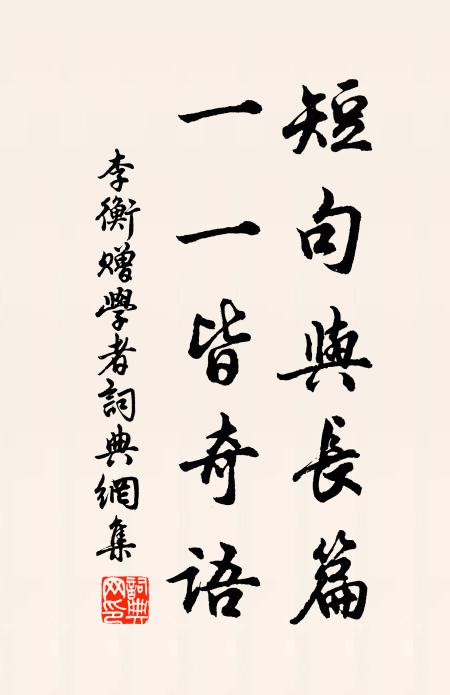 短句與長篇
一一皆奇語
李衡贈學者詞典網集
詞典網印